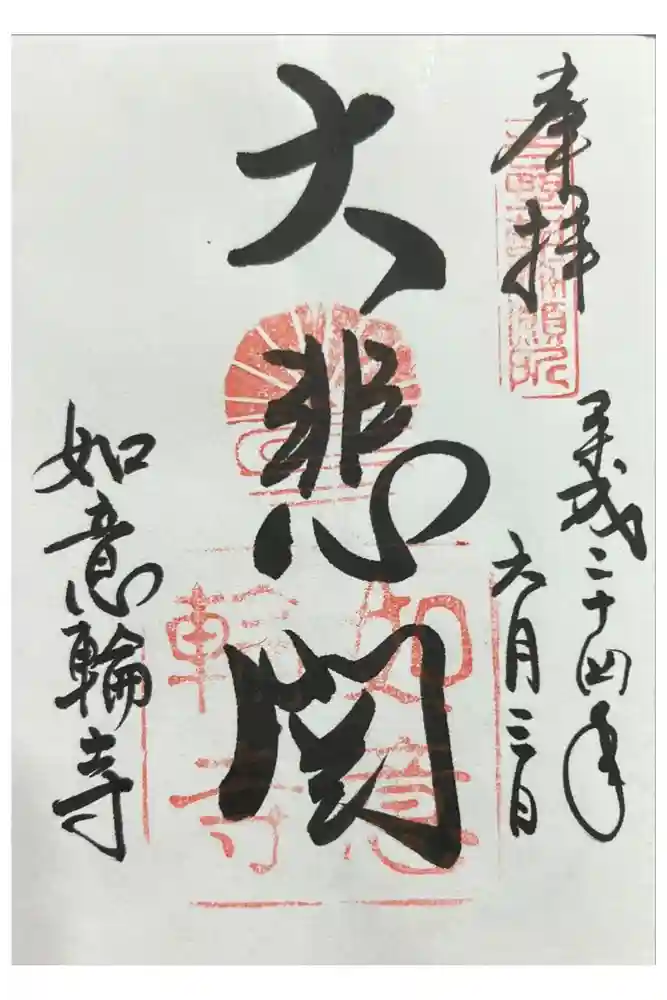 奉拝
平成二十四年
六月三日
大悲閣
如意輪寺
如意
輪寺